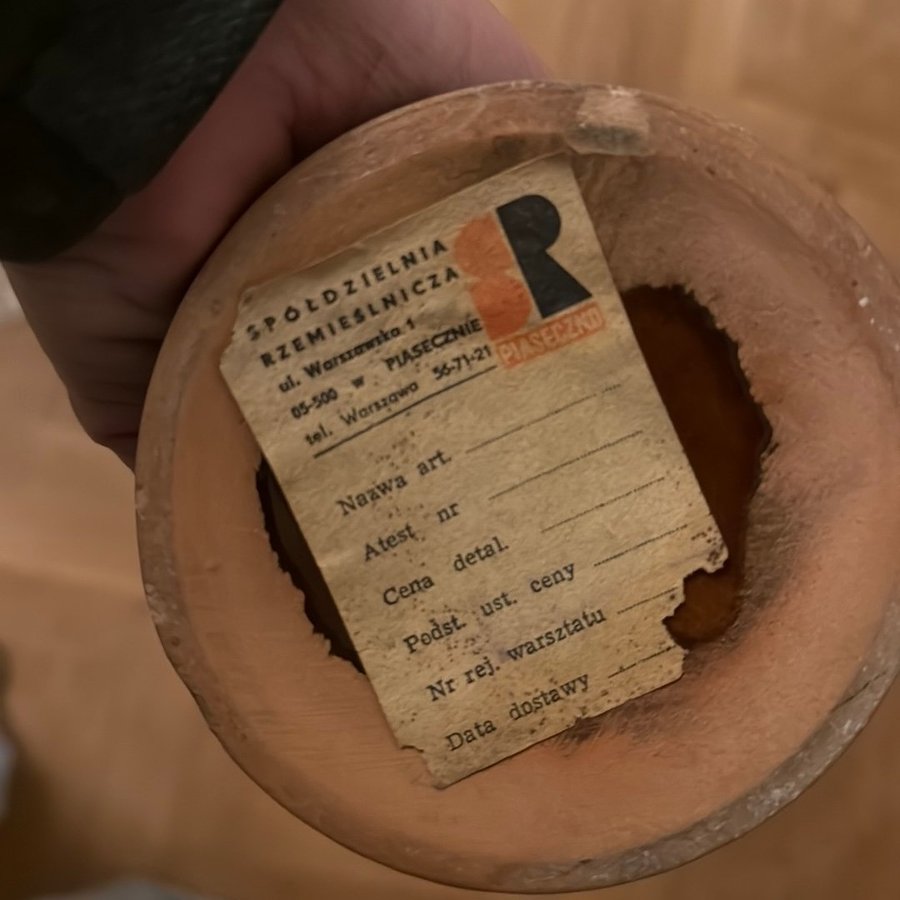 SPÓŁDZIELNIA
RZEMIEŚLNICZA
ul. Warszawska 1
05-500 w PIASECZNIE
tel. Warszawa 56-71-21
SR
PIASECZNO
Nazwa art.
Atest nr
Cena detal.
Podst. ust. ceny
Nr rej. warsztatu
Data dostawy